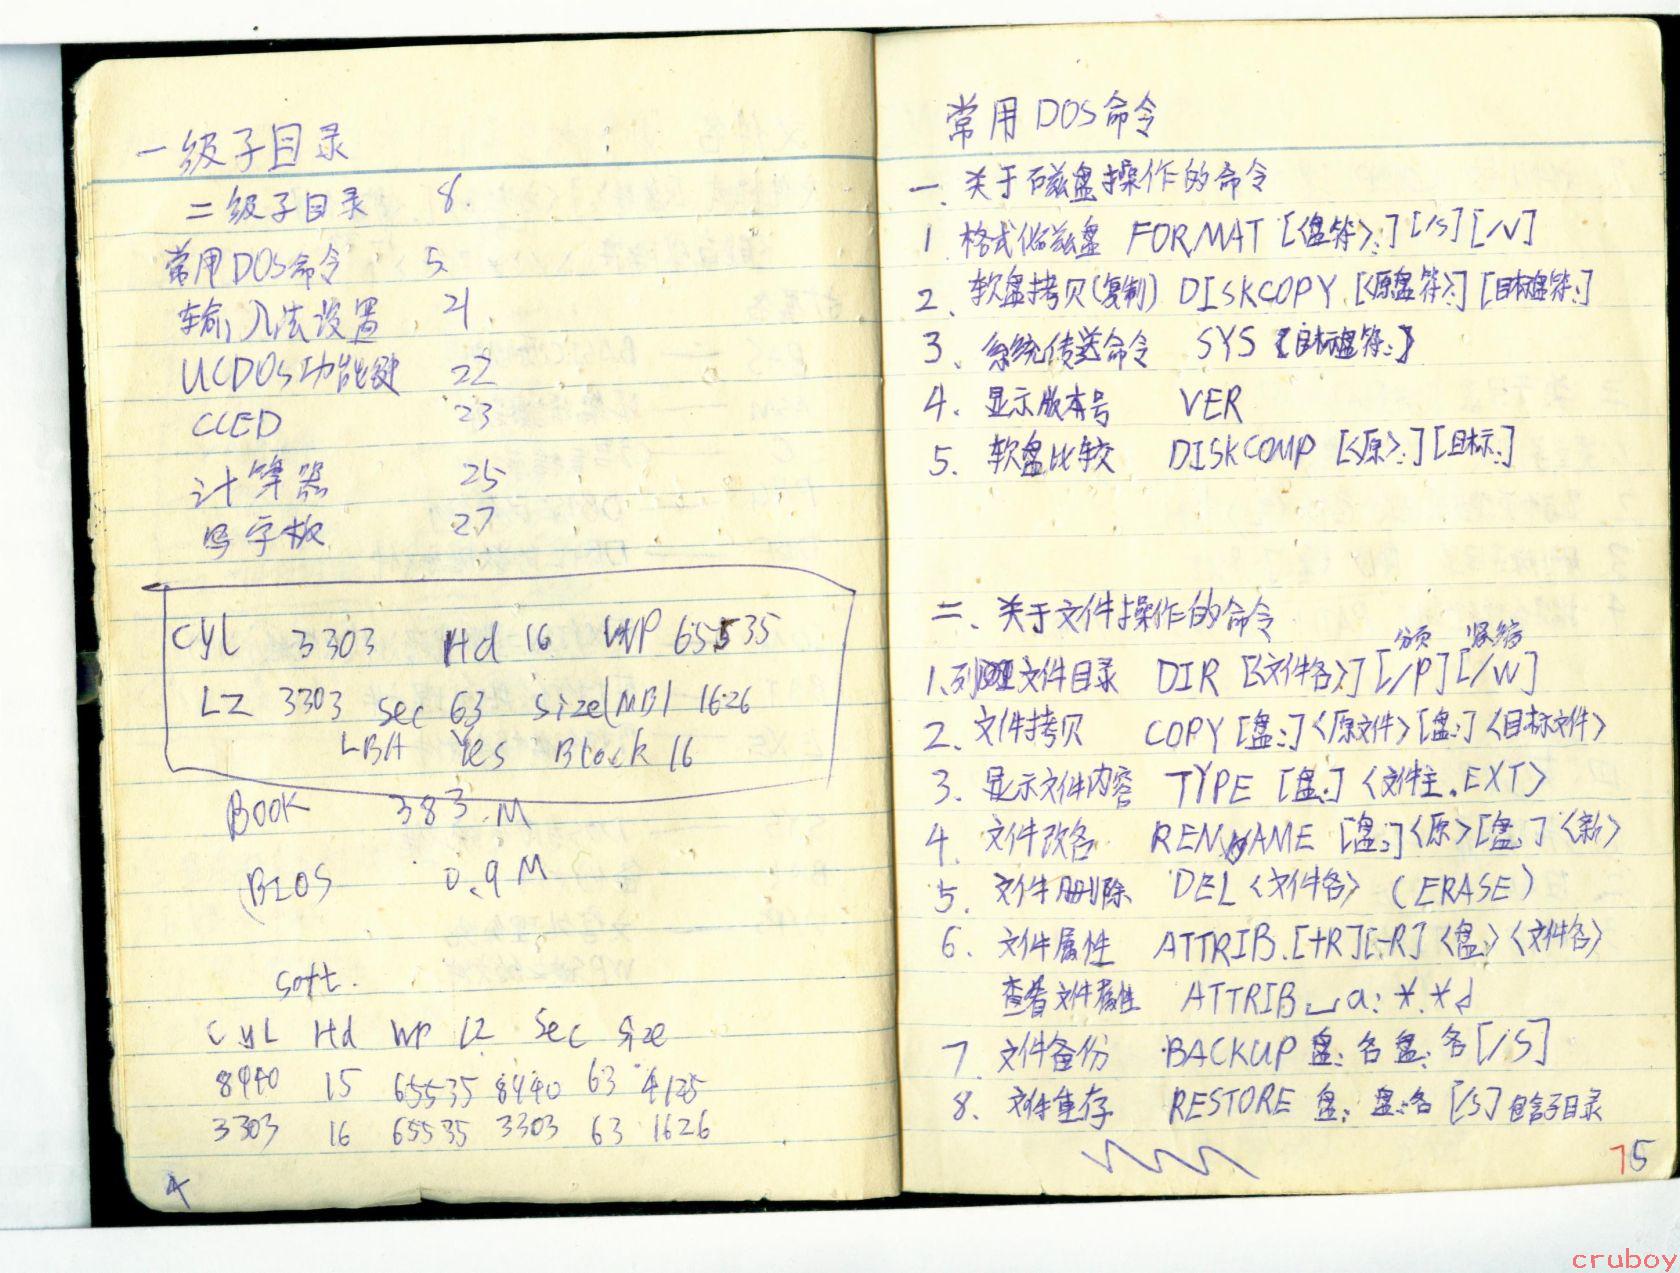 一级子目录
二级子目录 8.
常用DOS命令 5
输入法设置 21
UCDOS功能键 22
CCED 23
计算器 25
写字板 27
Cyl 3303 Hd 16 WP 65535
LZ 3303 Sec 63 Size(MB) 1626
LBA Yes Block 16
BOOK 383.M
BIOS 0.9M
Soft.
CyL Hd WP LZ Sec Size
8940 15 65535 8940 63 4125
3303 16 65535 3303 63 1626
4
常用DOS命令
一、关于磁盘操作的命令
1 格式化磁盘 FORMAT [<盘符>:][/S][/V]
2、软盘拷贝(复制) DISKCOPY [<原盘符>:][目标盘符:]
3、系统传送命令 SYS [目标盘符:]
4、显示版本号 VER
5、软盘比较 DISKCOMP [<原>:][目标:]
二、关于文件操作的命令
分页 紧缩
1、列文件目录 DIR [<文件名>][/P][/W]
2、文件拷贝 COPY [盘:]<原文件>[盘:]<目标文件>
3、显示文件内容 TYPE [盘:]<文件主.EXT>
4、文件改名 RENAME [盘:]<原>[盘:]<新>
5、文件删除 DEL <文件名> (ERASE)
6、文件属性 ATTRIB.[+R][-R]<盘:><文件名>
查看文件属性 ATTRIB␣a:*.*↲
7、文件备份 BACKUP 盘:名 盘:名[/S]
8、文件重存 RESTORE 盘: 盘:名 [/S]包含子目录
5
cruboy